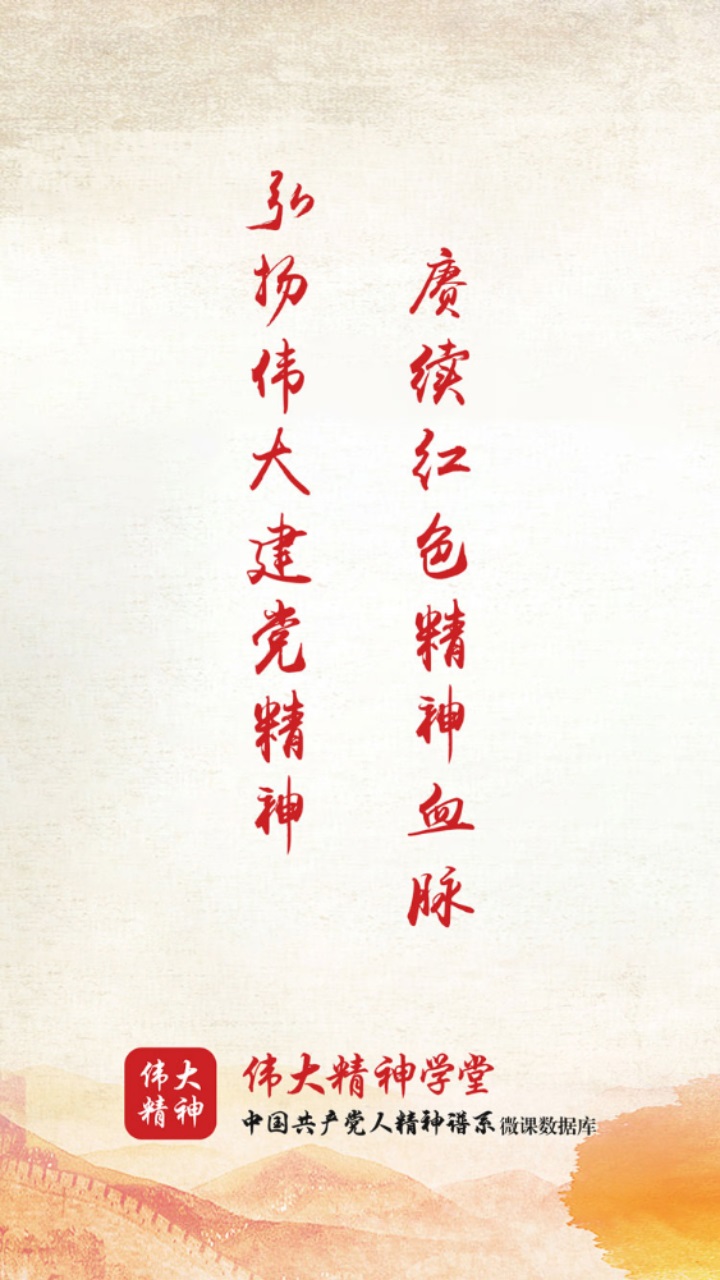 弘扬伟大建党精神
赓续红色精神血脉
伟大
精神
伟大精神学堂
中国共产党人精神谱系微课数据库